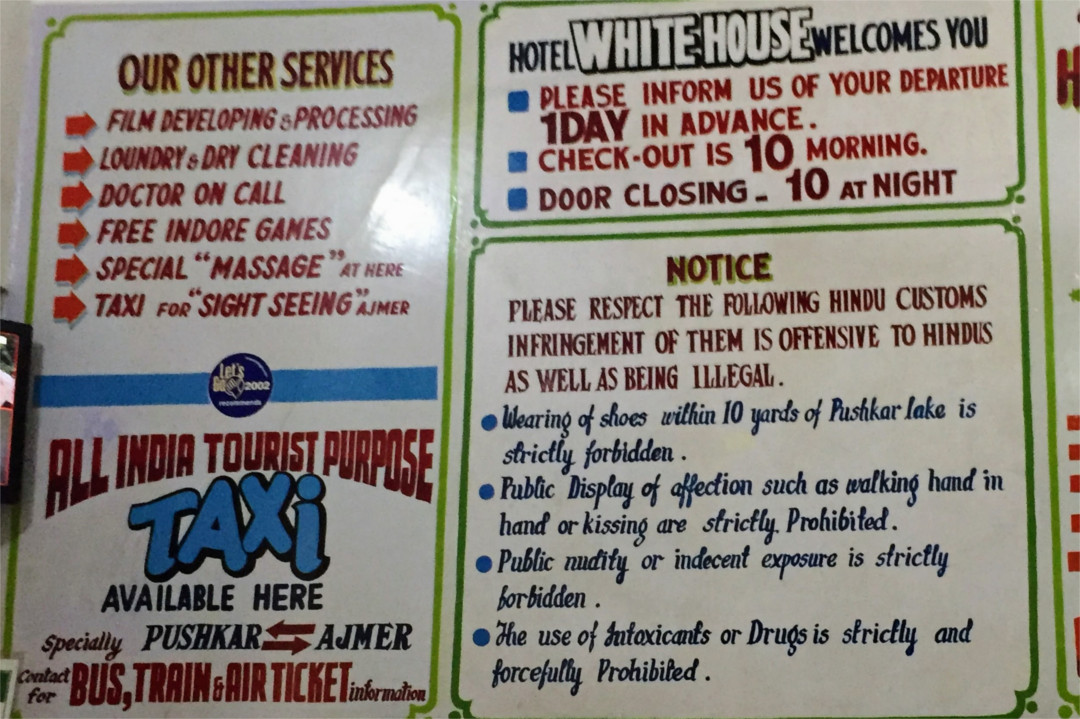 OUR OTHER SERVICES
FILM DEVELOPING & PROCESSING
LOUNDRY & DRY CLEANING
DOCTOR ON CALL
FREE INDORE GAMES
SPECIAL "MASSAGE" AT HERE
TAXI FOR "SIGHT SEEING" AJMER
Let's
Go 2002
recommends
ALL INDIA TOURIST PURPOSE
TAXi
AVAILABLE HERE
Specially PUSHKAR AJMER
Contact for BUS, TRAIN & AIR TICKET information
HOTEL WHITE HOUSE WELCOMES YOU
PLEASE INFORM US OF YOUR DEPARTURE
1DAY IN ADVANCE.
CHECK-OUT IS 10 MORNING.
DOOR CLOSING - 10 AT NIGHT
NOTICE
PLEASE RESPECT THE FOLLOWING HINDU CUSTOMS
INFRINGEMENT OF THEM IS OFFENSIVE TO HINDUS
AS WELL AS BEING ILLEGAL.
Wearing of shoes within 10 yards of Pushkar lake is
strictly forbidden.
Public Display of affection such as walking hand in
hand or kissing are strictly. Prohibited.
Public nudity or indecent exposure is strictly
forbidden.
The use of Intoxicants or Drugs is strictly and
forcefully Prohibited.